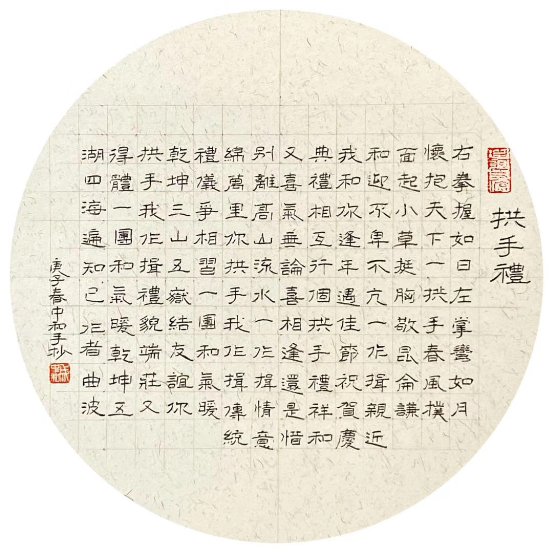 拱手禮
右拳握如日左掌彎如月
懷抱天下一拱手春風樸
面起小草挺胸敬昆侖謙
和迎不卑不亢一作揖親近
我和你逢年遇佳節祝賀慶
典禮相互行個拱手禮祥和
又喜氣無論喜相逢還是惜
别離高山流水一作揖情意
綿萬里你拱手我作揖傳統
禮儀爭相習一團和氣暖
乾坤三山五嶽結友誼你
拱手我作揖禮貌端莊又
得體一團和氣暖乾坤五
湖四海遍知己作者曲波
庚子春中和手抄